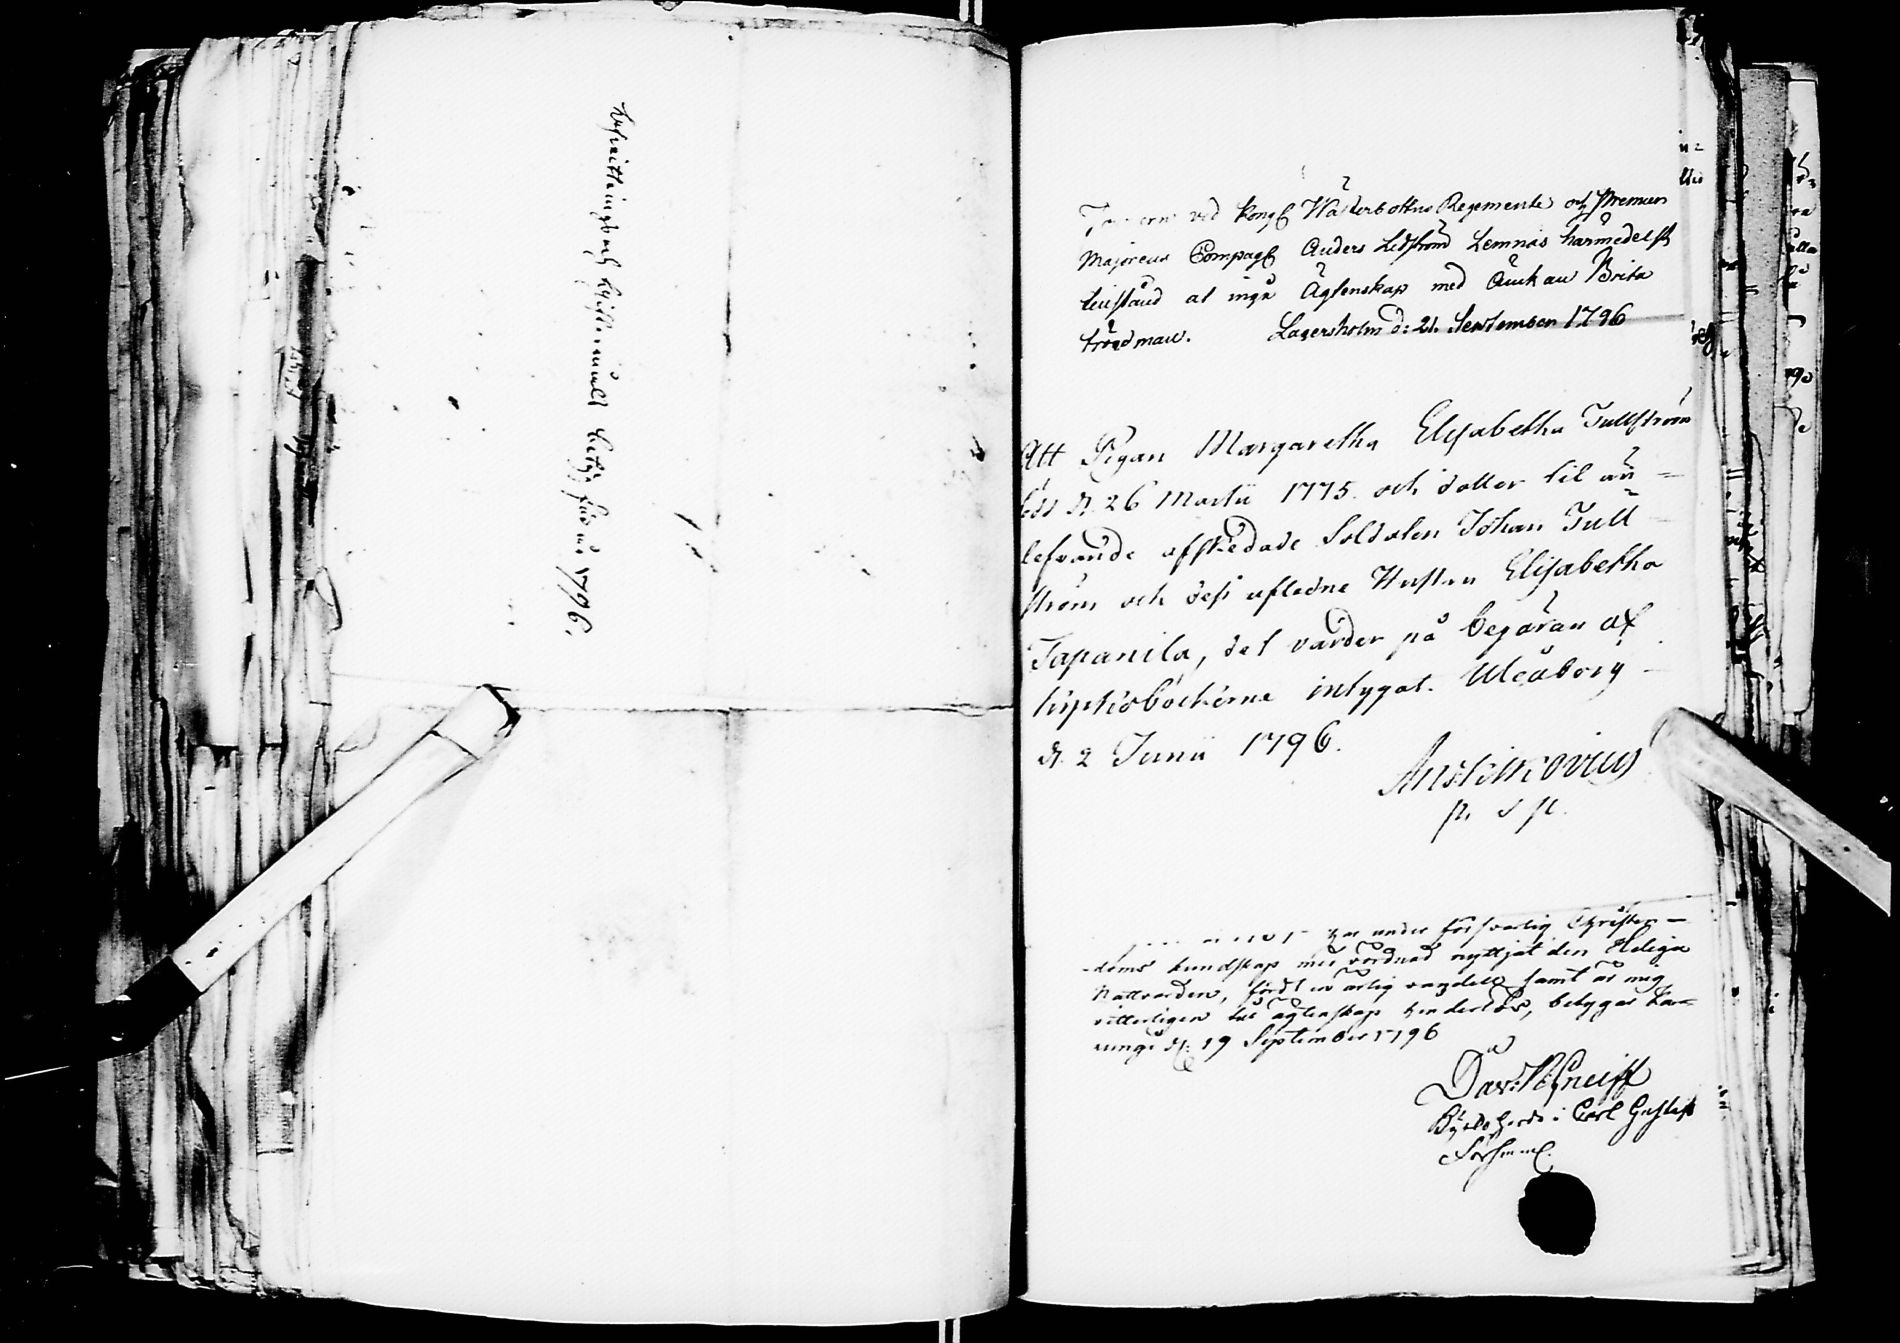 1796.
vid Kongl Wästerbottns Regemente och Premier
Majorens Compagl Anders Ledström Lemnas härmedelst
tillstånd at ingå Ägtenskap med Änckan Brita
Trädman. Lagersholm d: 21. September 1796
Att Pigan Margaretha Elisabetha Tullström
född d. 26 Martii 1775. och dotter til än=
lefvande afskedade Soldaten Johan Tull=
ström och dess afledne Hustru Elisabetha
Tapanila, det varder på begäran af
kyrkioböckerna intygat. Uleåborg
d. 2 Junii 1796.
p. s p.
har under försvarlig Christen-
doms kundskap med vördnad nyttjat den Heliga
Nattvarden, fördt en ärlig vandel samt är mig
vitterligen till ägtenskap hinderlös, betygar Ka-
rungi d: 19 September 1796
Kyrko herde i Carl Gustafs
Församl.